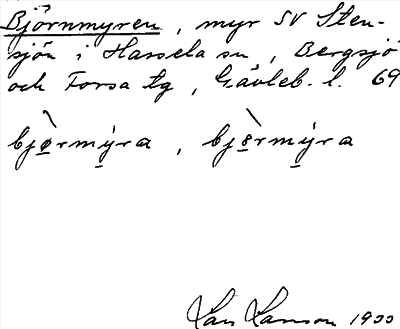 Björnmyren, myr SV Sten-
sjön i Hassela sn, Bergsjö
och Forsa tg, Gävleb. l. 69
bjørmyra, bjørmyra
Lars Larsson 1900